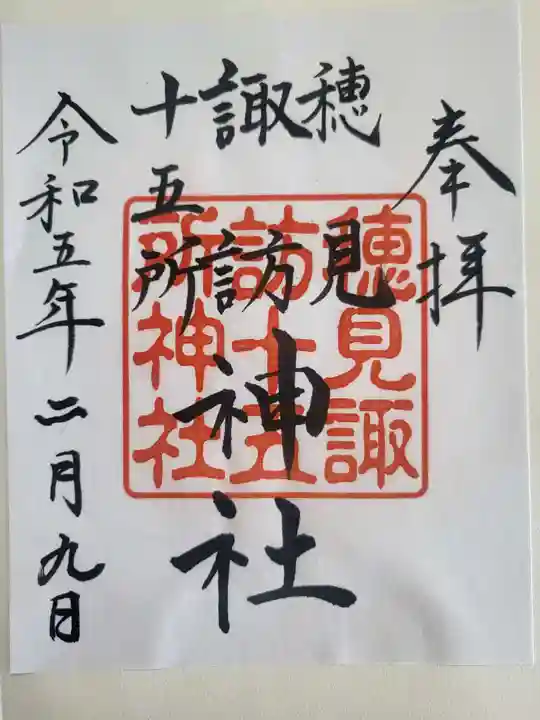 奉拝
穂見
諏訪
十五所
神社
令和五年二月九日
穂見諏
訪十五
所神社